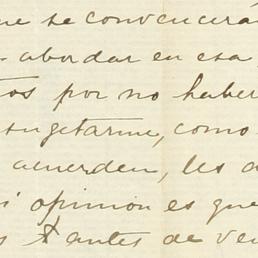 ue se convencerá
abordar en esa
tos por no haber
sugetarme, como
acuerden, les d
i opinion es que
s antes de ve